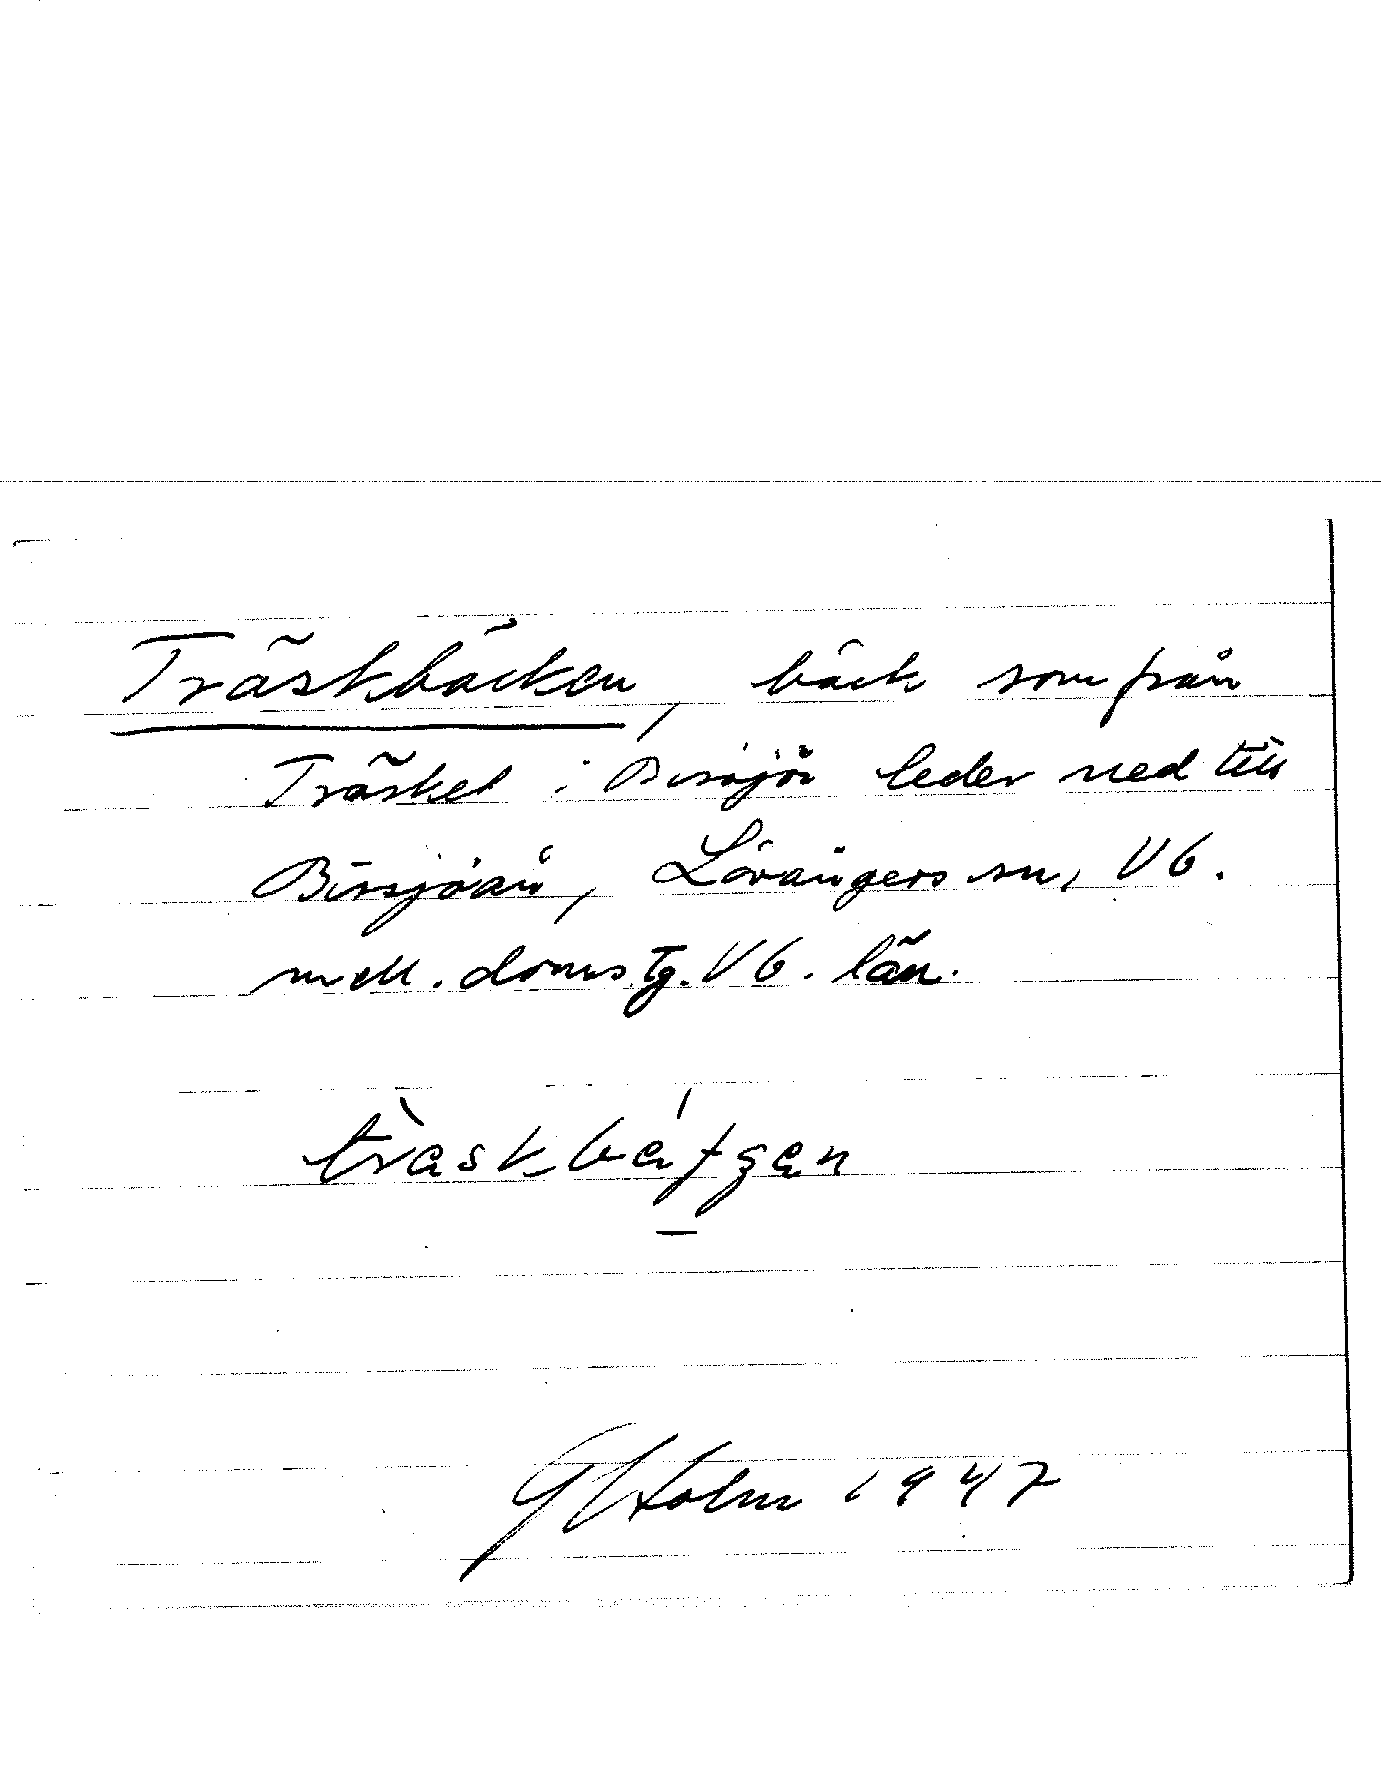 Träskbäcken, bäck som från
Träsket i Bissjön leder ned till
Bissjöån, Lövångers sn, Vb.
mell. domstg. Vb. län.
G Holm 1947